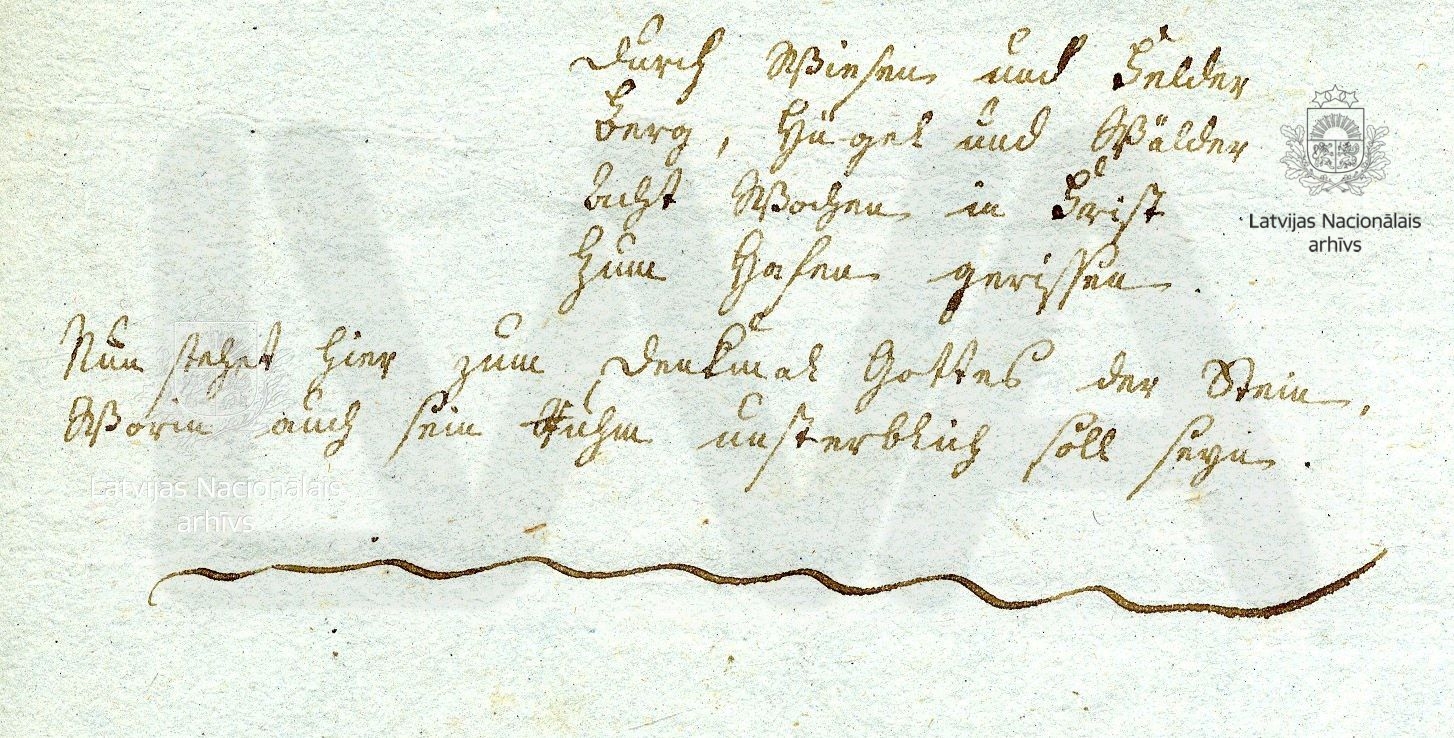 Durch Wiesen und Felder
Berg, Hügel und Wälder
Acht Wochen in Frist
Zum Hafen gerissen.
Nun stehet hier zum Denkmal Gottes der Stein,
Worin auch sein Ruhm unsterblich soll seyn.
Latvijas Nacionālais
arhīvs
Latvijas Nacionālais
arhīvs